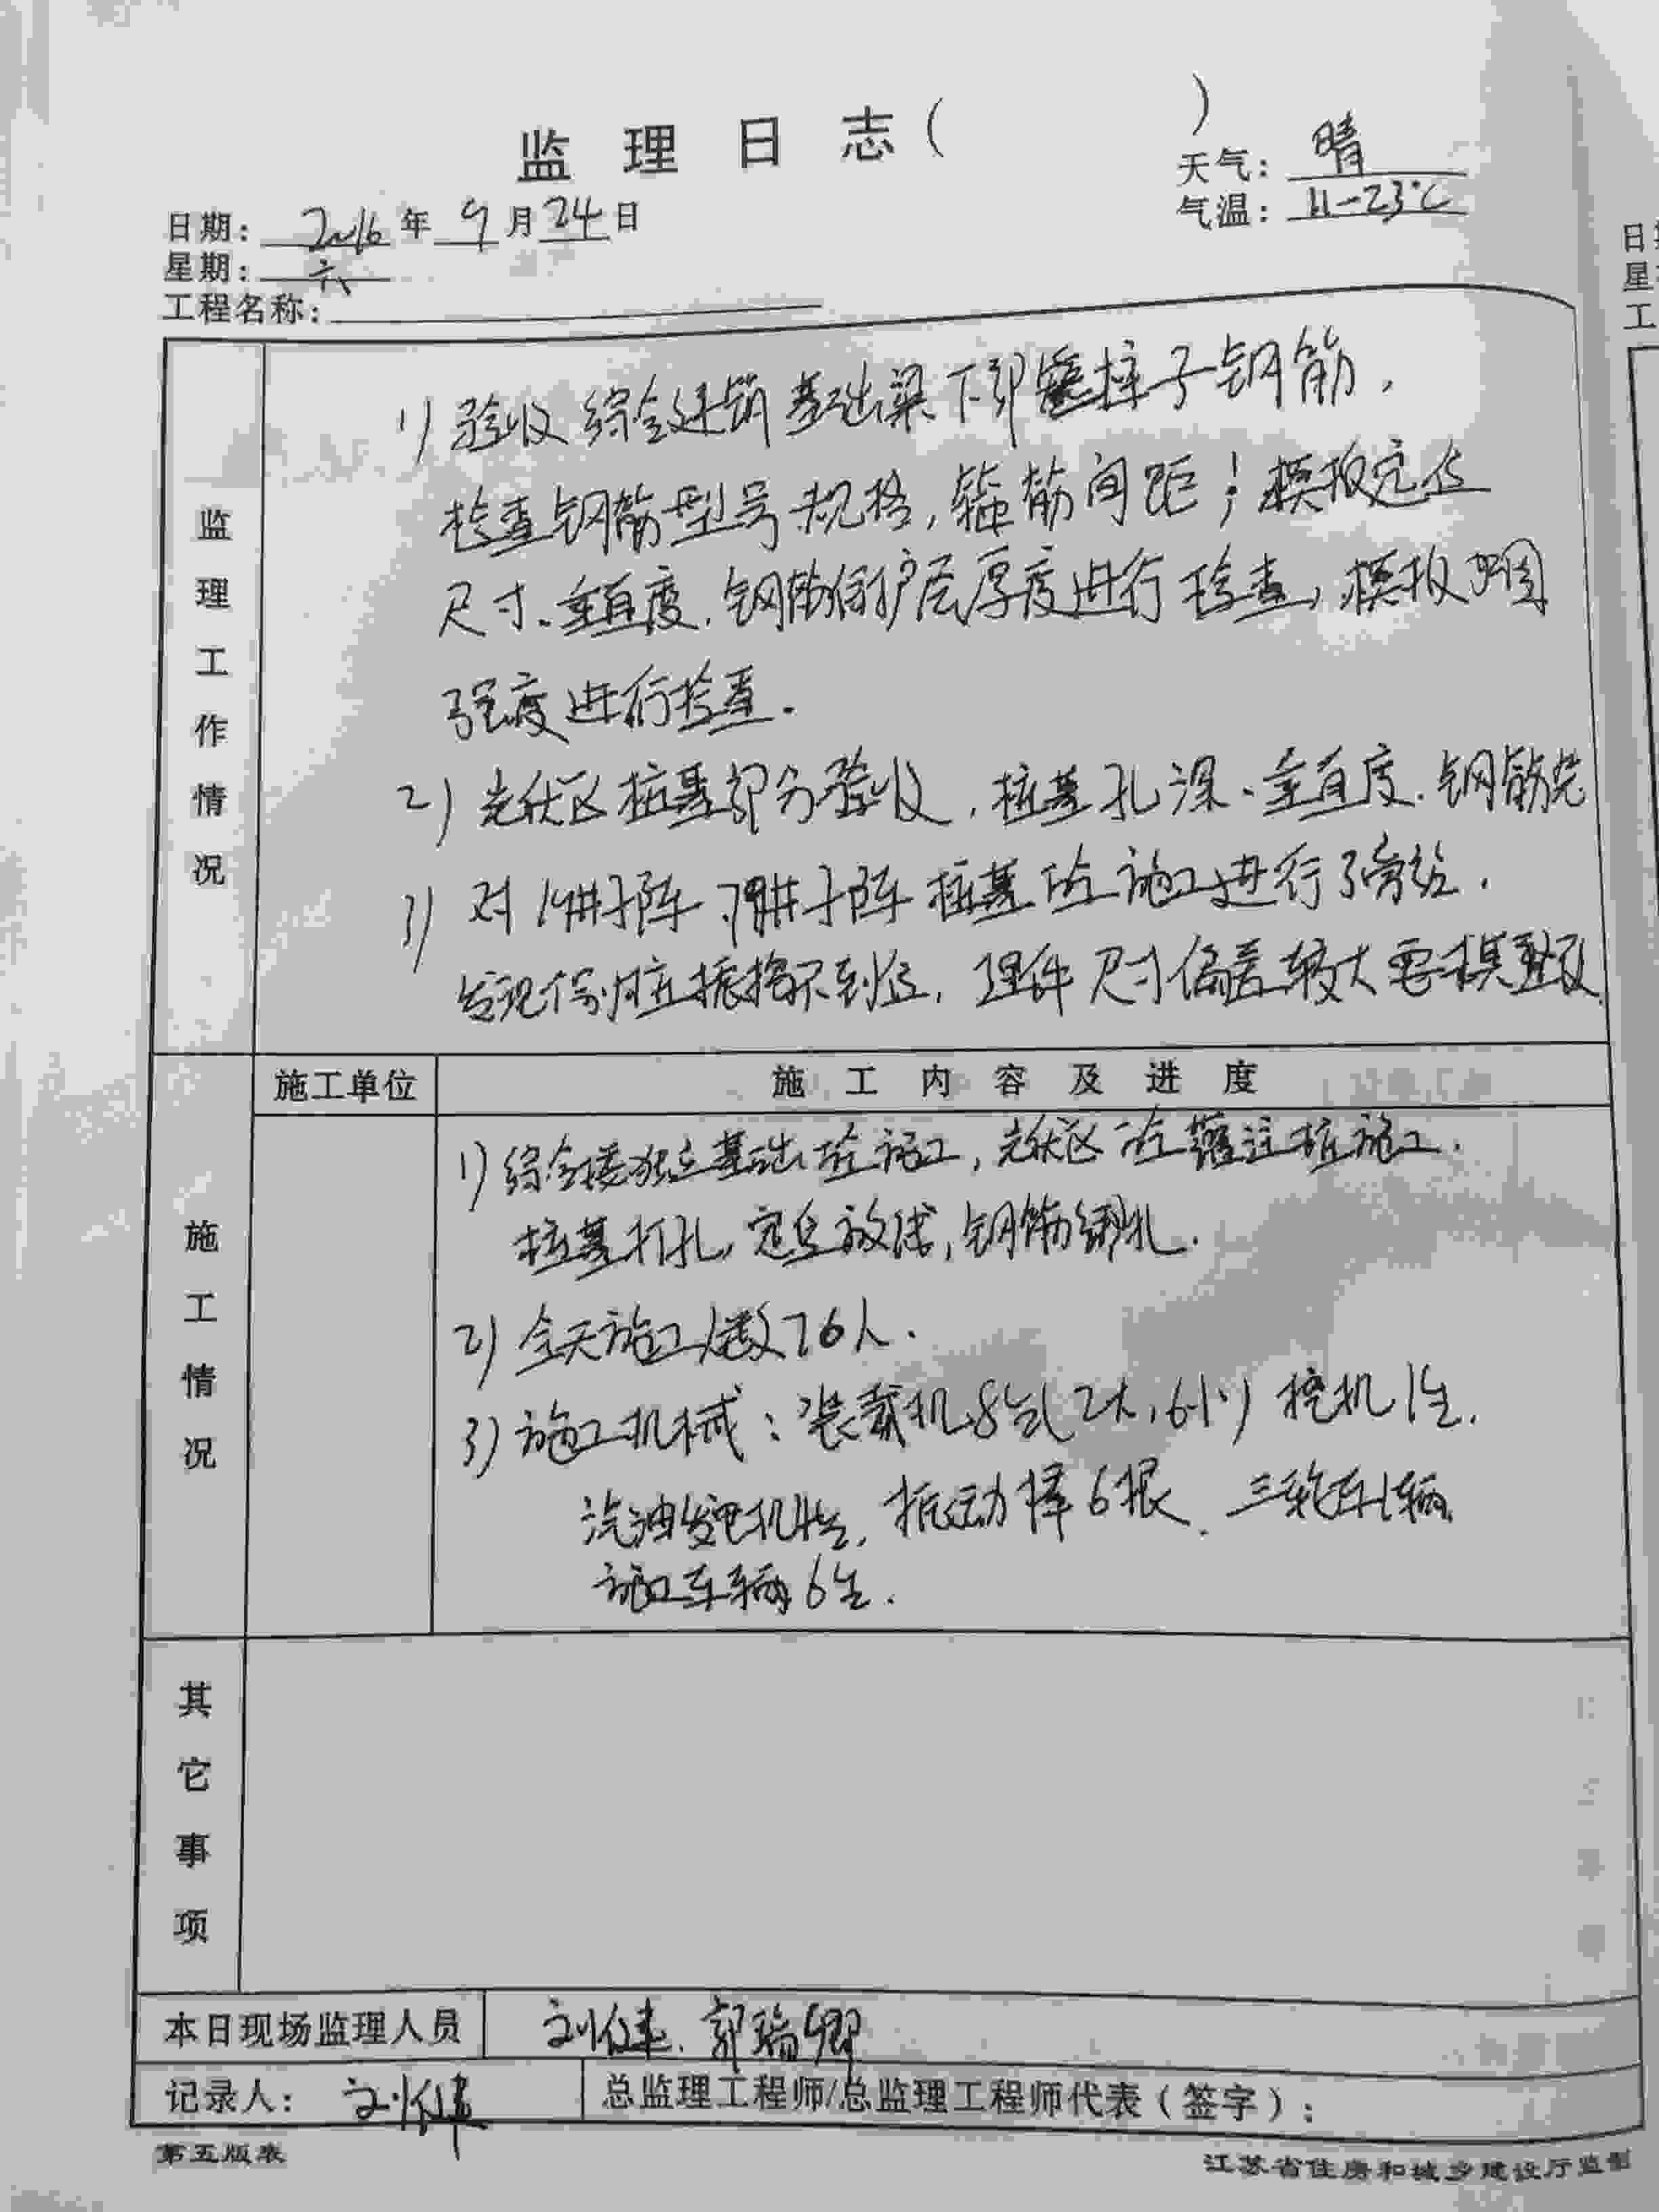 监理日志( )
天气: 晴
日期: 2016年9月24日
气温: 11-23℃
星期: 六
工程名称:
监理工作情况
1) 验收综合建筑基础梁下部 子钢筋.
检查钢筋型号规格,箍筋间距;模板定位
尺寸、垂直度.钢筋保护层厚度进行检查,模板
强度进行检查.
2) 光伏区桩基部分验收,桩基孔深、垂直度.钢筋
3) 对 子阵、 子阵桩基砼施工进行了旁站.
发现 桩振捣不到位,埋件尺寸偏差较大
施工单位 施工内容及进度
施工情况
1) 综合楼独立基础砼施工,光伏区砼灌注桩施工.
桩基打孔,定点放线,钢筋绑扎.
2) 今天施工人数76人.
3) 施工机械:装载机8台(2大,6小) 挖机1台.
汽油发电机4台,振动棒6根、三轮车1辆
施工车辆6台.
其它事项
本日现场监理人员 刘健、郭瑞卿
记录人: 刘健 总监理工程师/总监理工程师代表(签字):
第五版表 江苏省住房和城乡建设厅监制
日
星
工